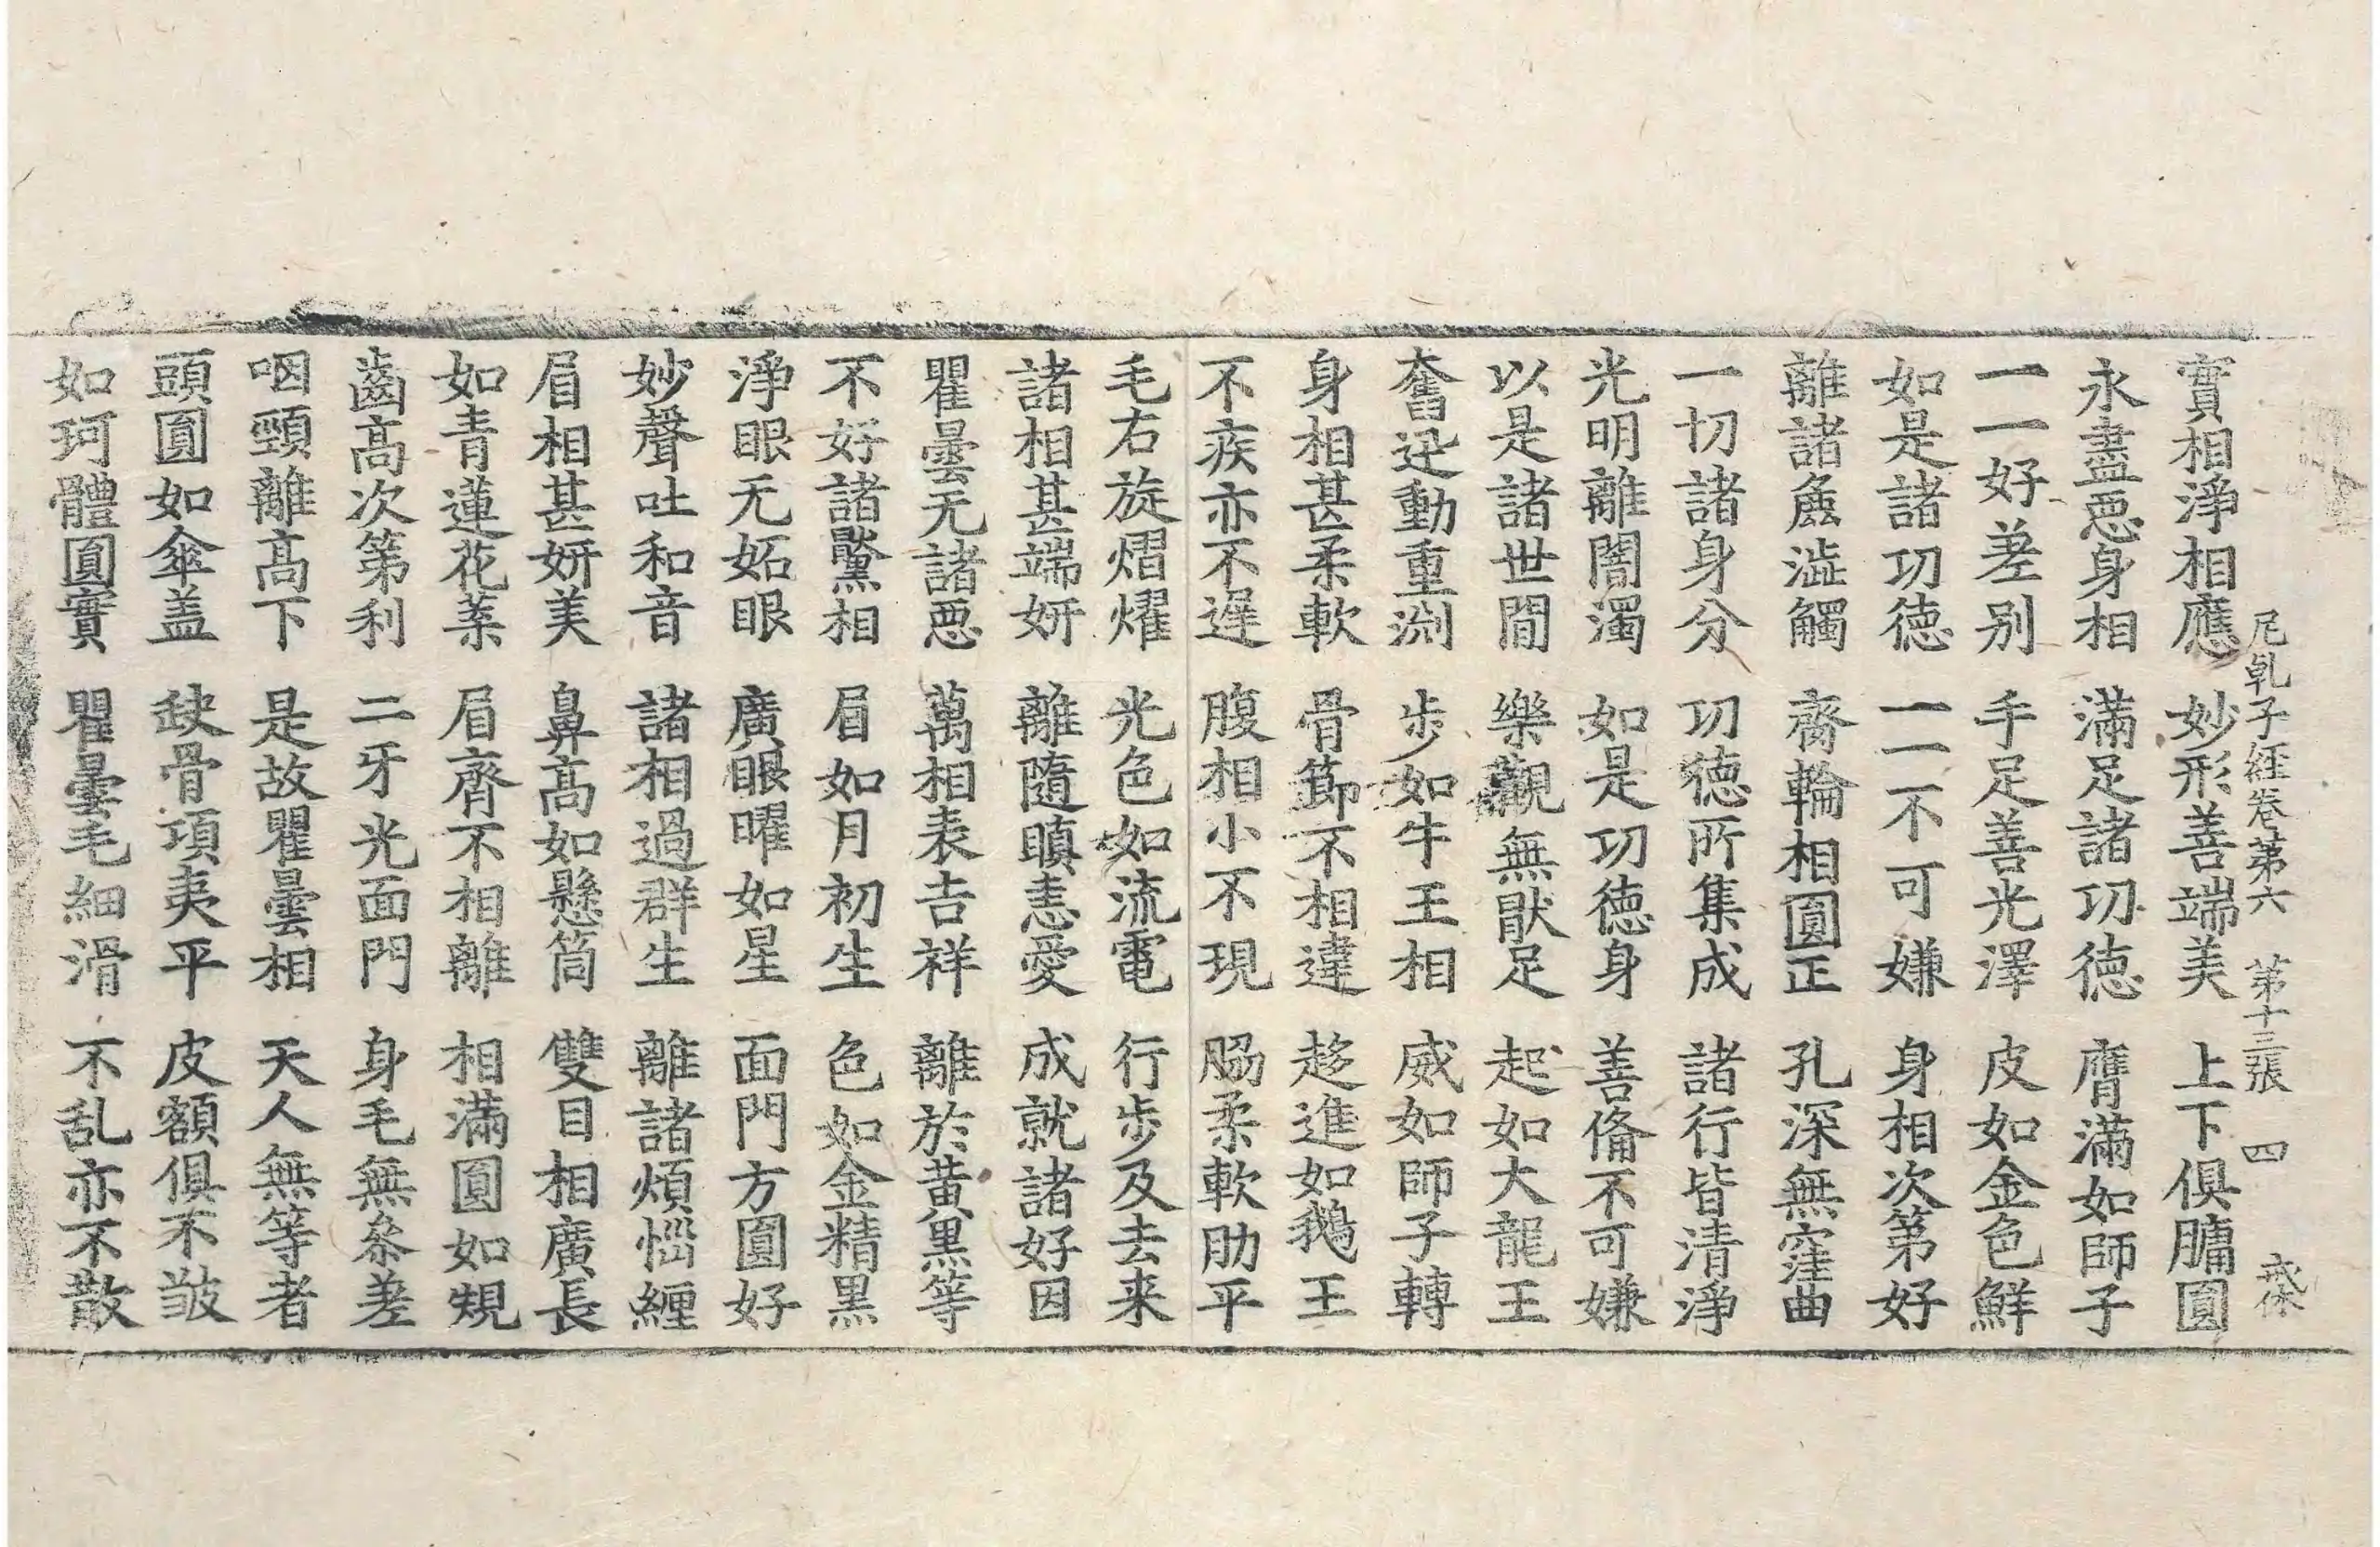 實相淨相應 妙形善端美 上下俱𦟛圓
尼乹子經卷第六 第十三張 四
永盡惡身相 滿足諸功德 膺滿如師子
一一好差别 手足善光澤 皮如金色鮮
如是諸功徳 一一不可嫌 身相次第好
離諸麁澁觸 齎輪相圓正 孔深無窪曲
一切諸身分 功徳所集成 諸行皆清淨
光明離闇濁 如是功徳身 善俻不可嫌
以是諸世間 樂觀無猒足 起如大龍王
奮迅動重渕 步如牛王相 威如師子轉
身相甚柔軟 骨節不相違 趍進如鵝王
不疾亦不遲 腹相小不現 脇柔軟肋平
毛右旋熠燿 光色如流電 行步及去来
諸相甚端妍 離隨瞋恚愛 成就諸好因
瞿曇无諸惡 萬相表吉祥 離於黄黒等
不好諸黶相 眉如月初生 色如金精黒
淨眼无妬眼 廣眼曜如星 面門方圓好
妙聲吐和音 諸相過群生 離諸煩惱纒
眉相甚妍美 鼻髙如懸筒 雙目相廣長
如青蓮花葉 眉齊不相離 相滿圓如䂓
齒髙次第利 二牙光面門 身毛無叅差
咽頸離髙下 是故瞿曇相 天人無等者
頭圓如傘盖 缺骨項夷平 皮額俱不皺
如珂體圓實 瞿曇毛細滑 不乱亦不散